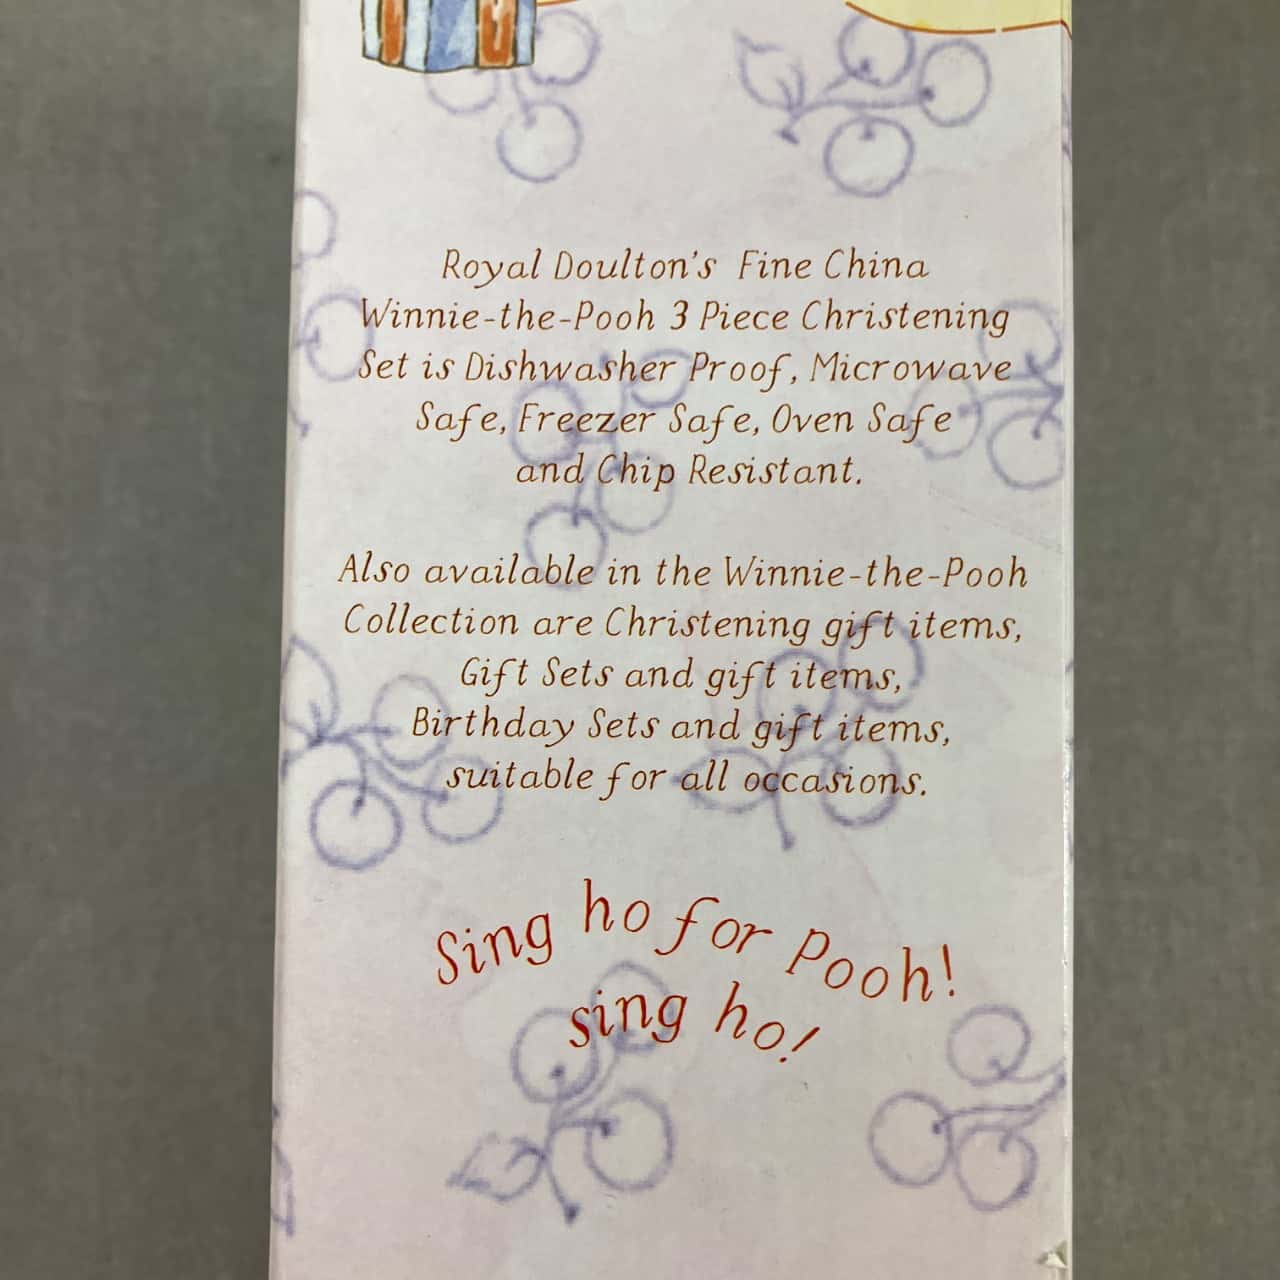 Royal Doulton's Fine China
Winnie-the-Pooh 3 Piece Christening
Set is Dishwasher Proof, Microwave
Safe, Freezer Safe, Oven Safe
and Chip Resistant.
Also available in the Winnie-the-Pooh
Collection are Christening gift items,
Gift Sets and gift items,
Birthday Sets and gift items,
suitable for all occasions.
Sing ho for Pooh!
sing ho!